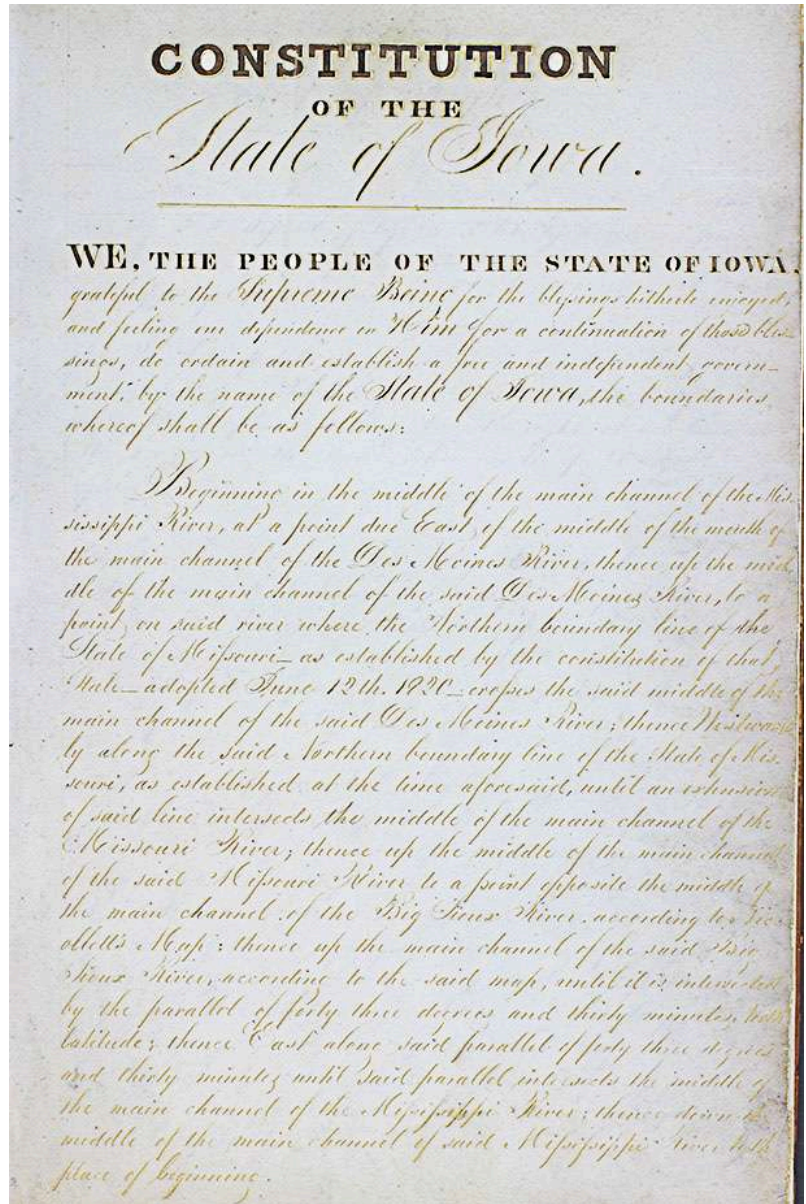 CONSTITUTION
OF THE
State of Iowa.
WE, THE PEOPLE OF THE STATE OF IOWA,
grateful to the Supreme Being for the blessings hitherto enjoyed,
and feeling our dependence on Him for a continuation of those bles-
sings, do ordain and establish a free and independent govern-
ment, by the name of the State of Iowa, the boundaries
whereof shall be as follows:
Beginning in the middle of the main channel of the Mis-
sissippi River, at a point due East of the middle of the mouth of
the main channel of the Des Moines River, thence up the mid
dle of the main channel of the said Des Moines River, to a
point on said river where the Northern boundary line of the
State of Missouri—as established by the constitution of that
State—adopted June 12th. 1820—crosses the said middle of the
main channel of the said Des Moines River; thence Westward
ly along the said Northern boundary line of the State of Mis
souri, as established at the time aforesaid, until an extension
of said line intersects the middle of the main channel of the
Missouri River; thence up the middle of the main channel
of the said Missouri River to a point opposite the middle of
the main channel of the Big Sioux River, according to Nic
ollett's Map; thence up the main channel of the said Big
Sioux River, according to the said map, until it is intersected
by the parallel of forty three degrees and thirty minutes North
latitude; thence East along said parallel of forty three degrees
and thirty minutes until said parallel intersects the middle of
the main channel of the Mississippi River; thence down the
middle of the main channel of said Mississippi River to the
place of beginning.